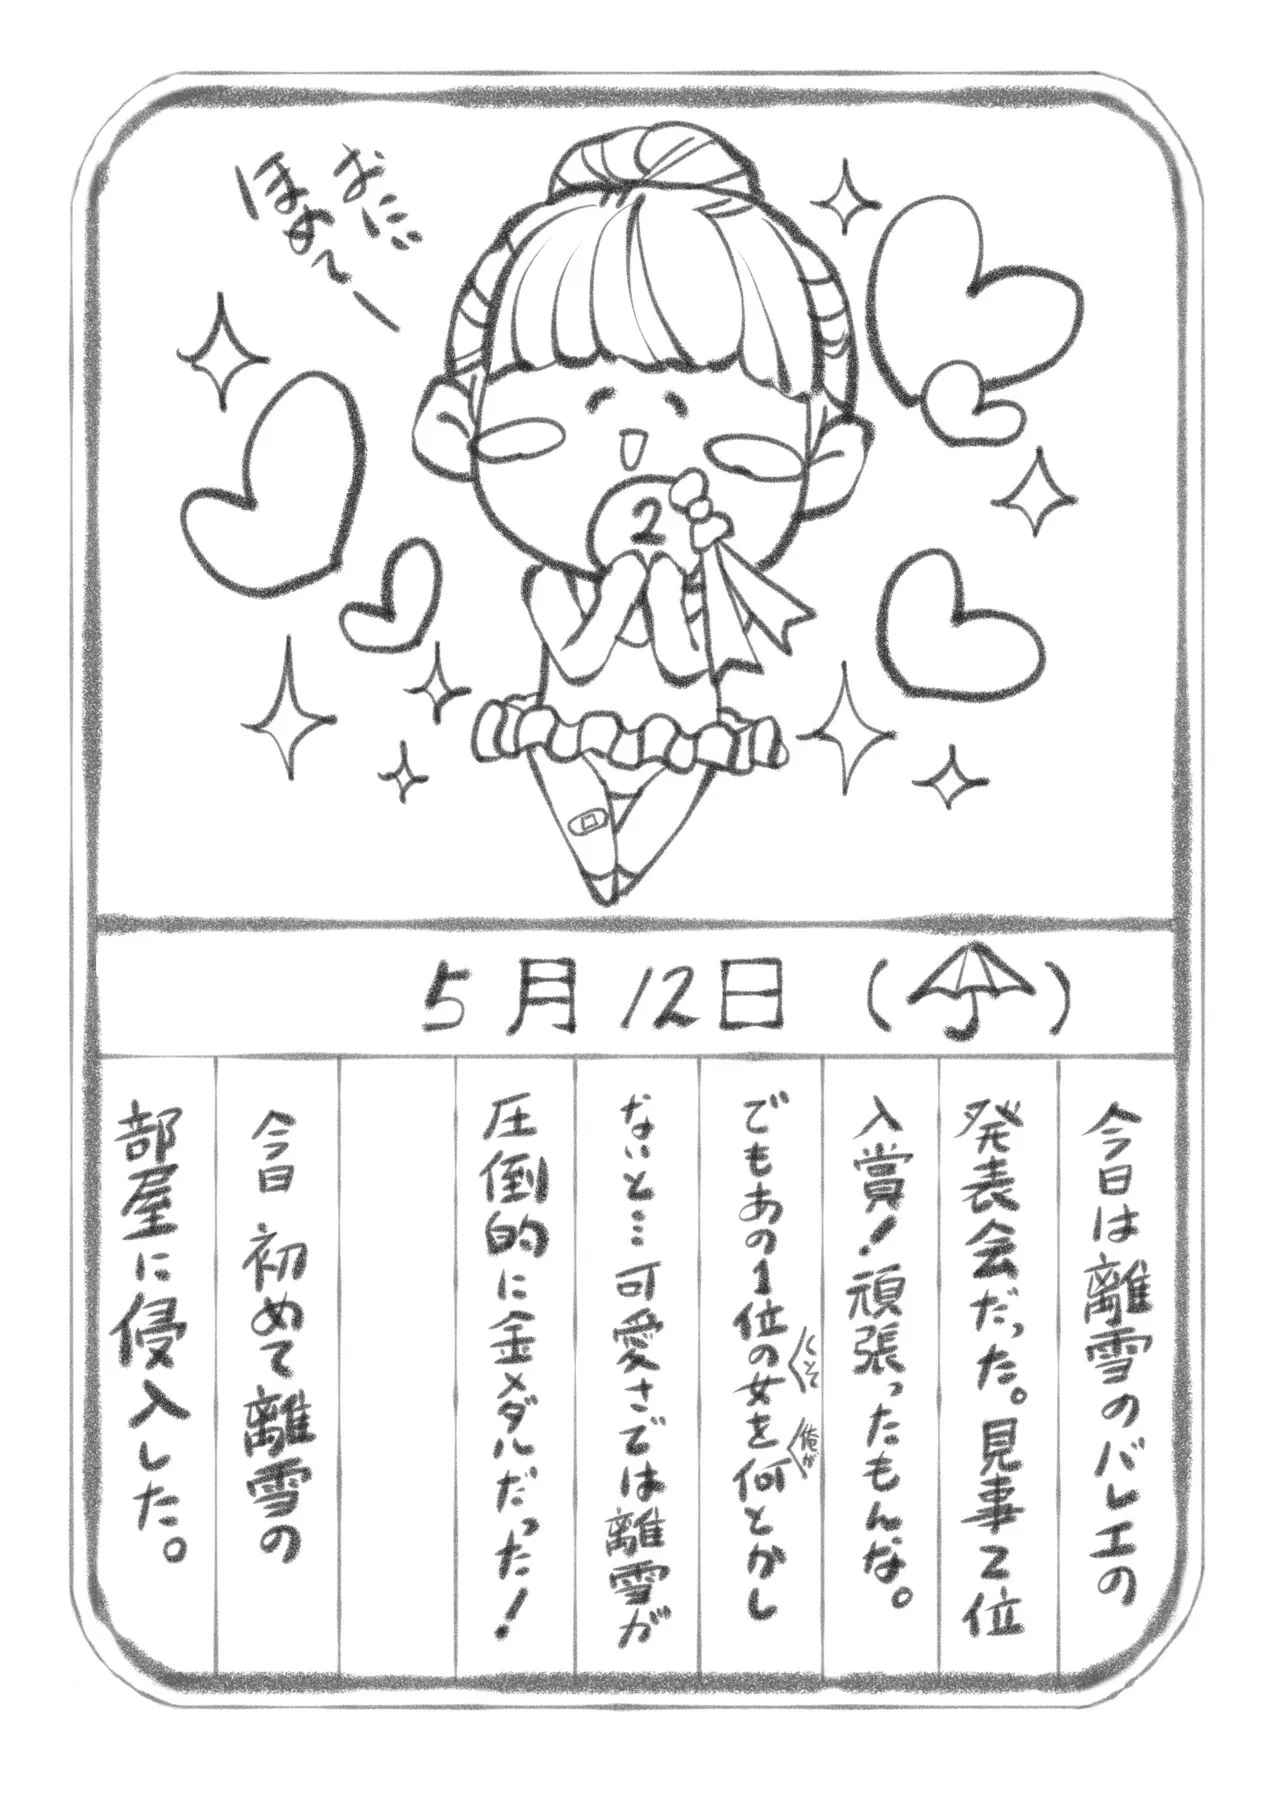 おにい
ほめて〜
2
5月12日（☂）
今日は離雪のバレエの
発表会だった。見事2位
入賞！頑張ったもんな。
でもあの1位の女を何とかし
くそて
俺が
ないと…可愛さでは離雪が
圧倒的に金メダルだった！
今日 初めて離雪の
部屋に侵入した。